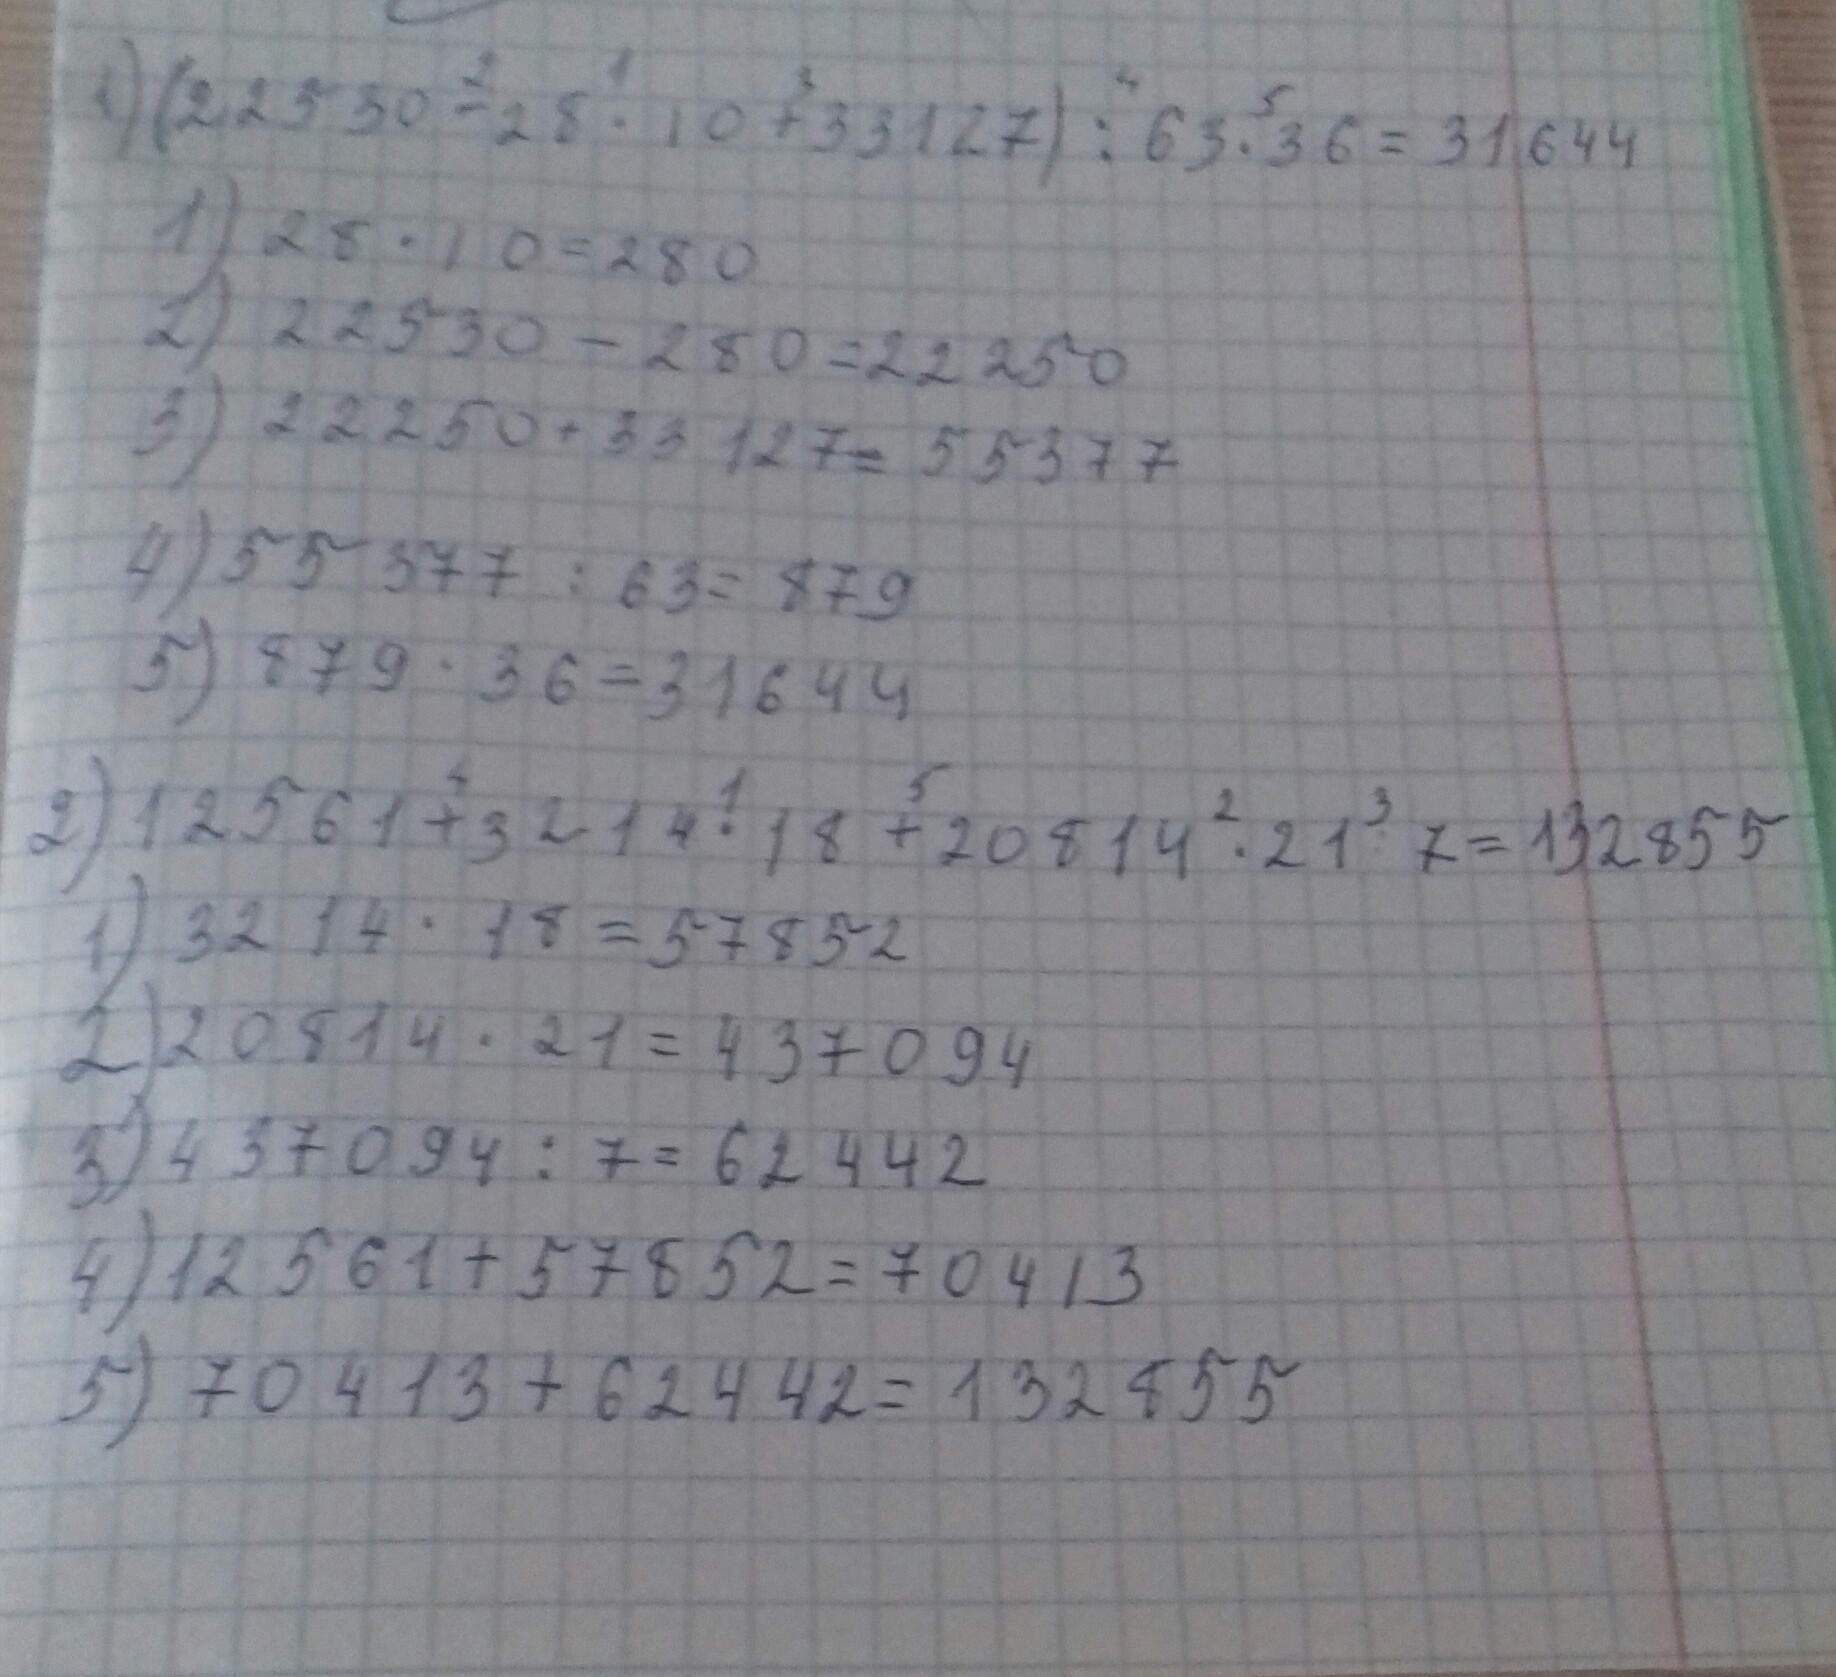 1) (22530 - 28 · 10 + 33127) : 63 · 36 = 31644
1) 28 · 10 = 280
2) 22530 - 280 = 22250
3) 22250 + 33127 = 55377
4) 55377 : 63 = 879
5) 879 · 36 = 31644
2) 12561 + 3214 · 18 + 20814 · 21 : 7 = 132855
1) 3214 · 18 = 57852
2) 20814 · 21 = 437094
3) 437094 : 7 = 62442
4) 12561 + 57852 = 70413
5) 70413 + 62442 = 132855